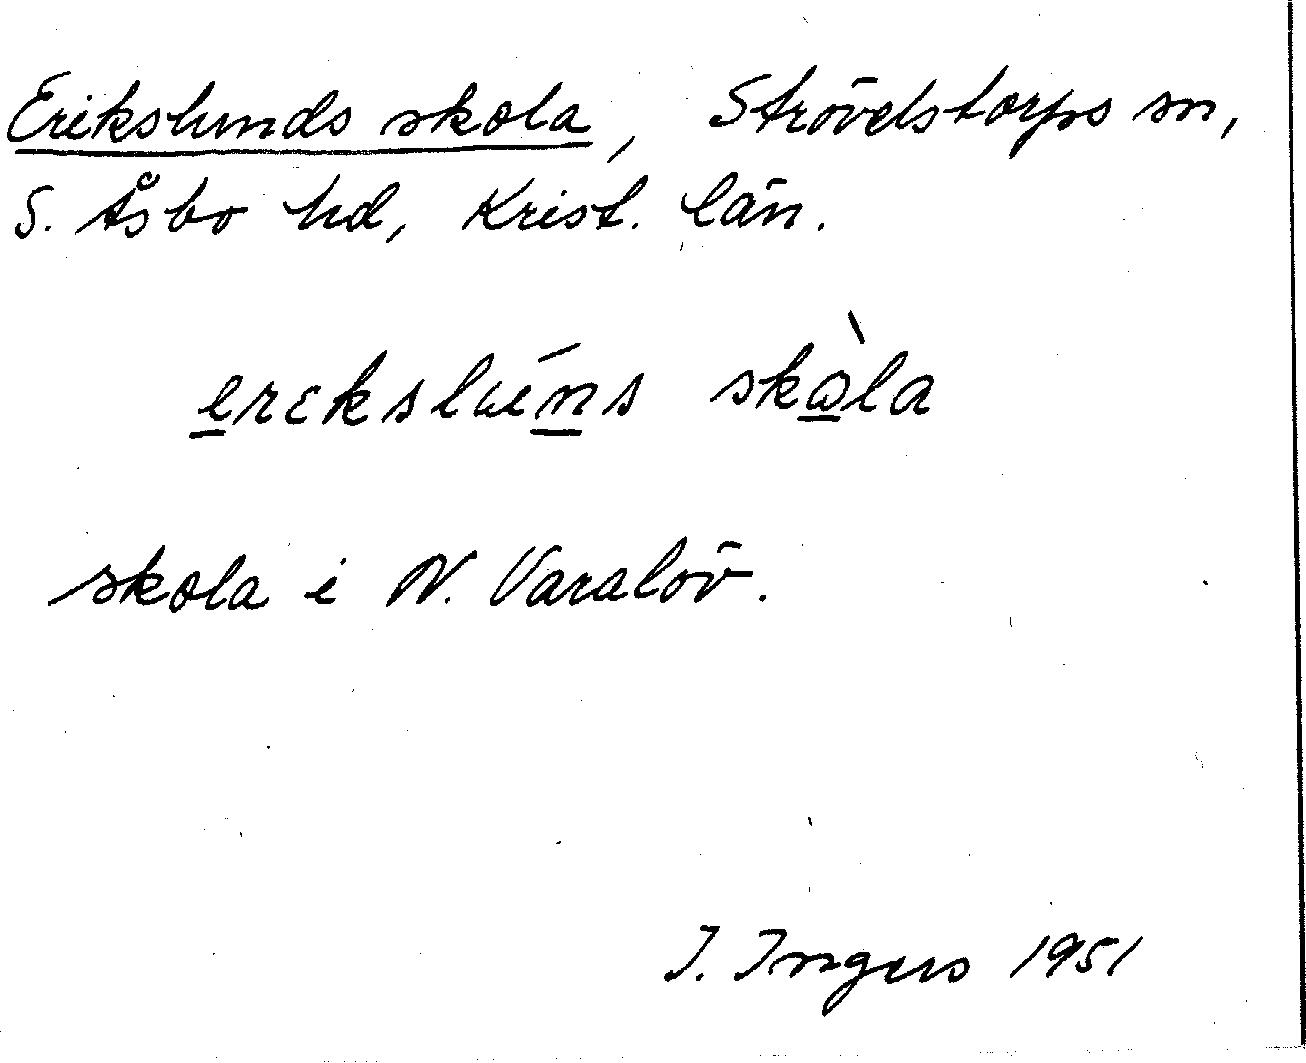 Erikslunds skola, Strövelstorps sn,
S. Åsbo hd, Krist. län.
erɛkslɯńs skɷ̀la
skola i N. Varalöv.
I. Ingers 1951